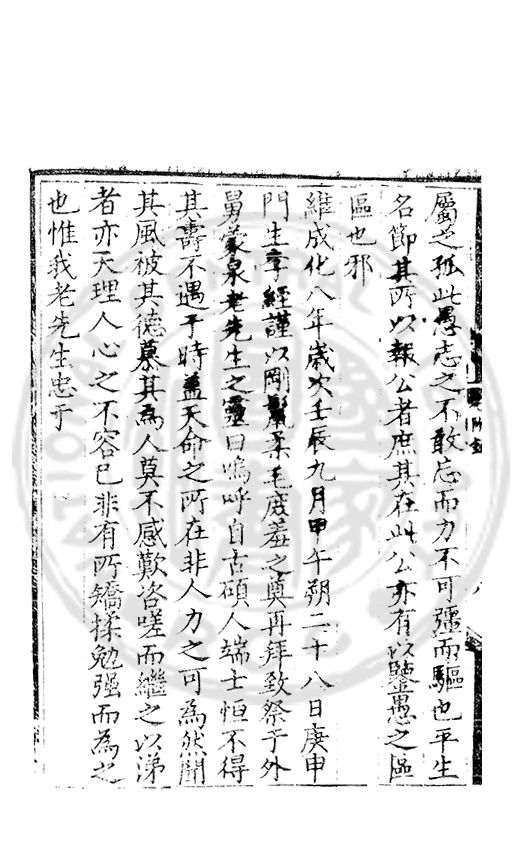 屬之孤此愚志之不敢忘而力不可彊而驅也平生
名節其所以報公者庶其在此公亦有以鑒愚之區
區也邪
維成化八年歲次壬辰九月甲午朔二十八日庚申
門生李經謹以剛鬣柔毛庶羞之奠再拜致祭于外
舅蒙泉老先生之靈曰嗚呼自古碩人端士恒不得
其壽不遇于時蓋天命之所在非人力之可為然聞
其風被其德慕其為人莫不感歎咨嗟而繼之以涕
者亦天理人心之不容已非有所矯揉勉强而為之
也惟我老先生忠于